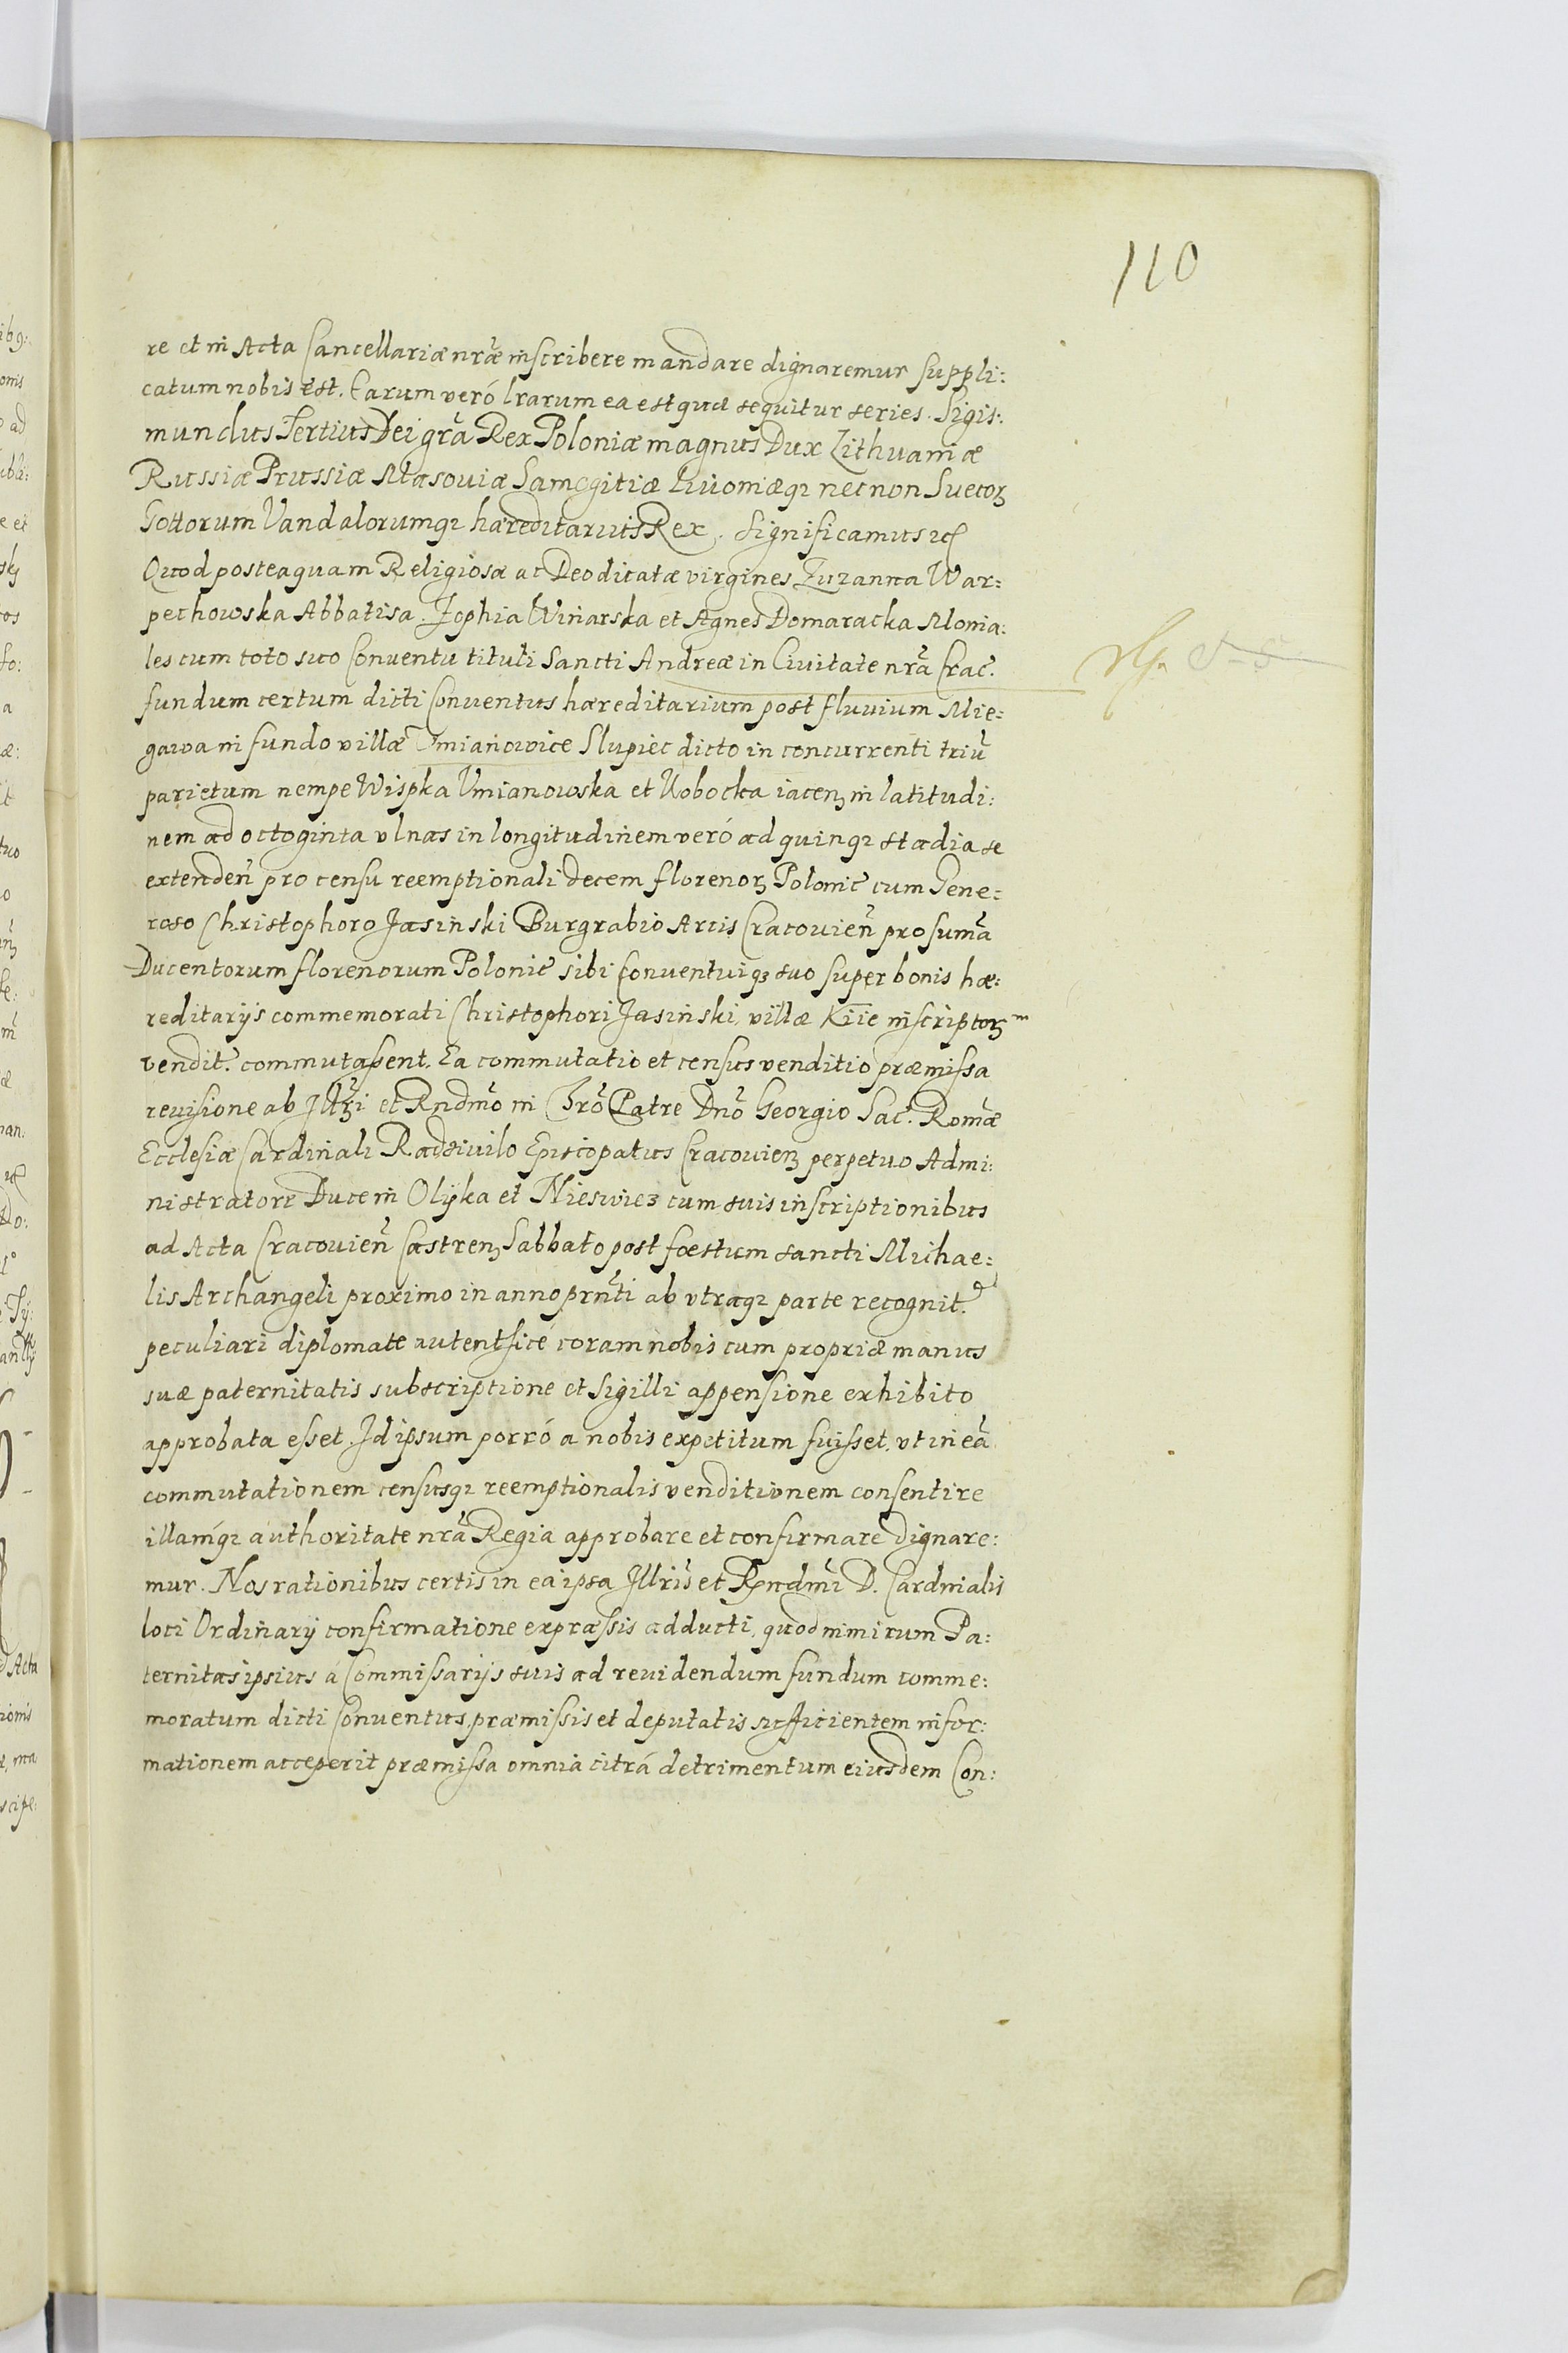 110
re et in Acta Cancellariæ nræ inscribere mandare dignaremur suppli:
catum nobis est. Earum veró lrarum ea est quæ sequitur series. Sigis:
mundus Tertius Dei gra Rex Poloniæ magnus Dux Lithuaniæ
Russiæ Prussiæ Masouiæ Samogitiæ Liuoniæq3 nec non Suecor3
Gottorum Vandalorumq3 hæreditarius Rex. Significamus
Quod posteaquam Religiosæ ac Deo dicatæ virgines Zuzanna War:
pechowska Abbatisa. Zophia Winarska et Agnes Domaracka Monia:
les cum toto suo Conventu tituli Sancti Andreæ in Ciuitate nra Crac.
fundum certum dicti Conventus hæreditarium post fluvium Mie:
gawa in fundo villæ Vmianowice Slupiec dicto in concurrenti triu
parietum nempe Wispka Vmianowska et Kobocka iacen3 in latitudi:
nem ad octoginta vlnas in longitudinem veró ad quinq3 stadia se
extenden pro censu reemptionali decem florenor3 Polonic cum Gene:
roso Christophoro Jasinski Burgrabio Arcis Cracouien pro suma
Ducentorum florenorum Polonic sibi Conventuiq3 suo super bonis hæ:
reditarijs commemorati Christophori Jasinski, villæ Kiie inscriptor3
vendit. commutassent. Ea commutatio et census venditio præmissa
reuisione ab et Rndmo in Chro Patre Dno Georgio Sac. Romæ
Ecclesiæ Cardinali Radziuilo Episcopatus Cracouien3 perpetuo Admi:
nistratore Duce in Olijka et Nieswiez cum suis inscriptionibus
ad Acta Cracouien Castren3 Sabbato post foestum sancti Michae:
lis Archangeli proximo in anno prnti ab vtraq3 parte recognit.
peculiari diplomate autentice coram nobis cum propriæ manus
suæ paternitatis subscriptione et Sigilli appensione exhibito
approbata esset. Id ipsum porró a nobis expetitum fuisset, vt in ea
commutationem censusq3 reemptionalis venditionem consentire
illamq3 authoritate nra Regia approbare et confirmare dignare:
mur. Nos rationibus certis in ea ipsa Illris et Rndmi D. Cardinalis
loci Ordinarij confirmatione expræssis adducti, quod nimirum Pa:
ternitas ipsius á Commissarijs suis ad reuidendum fundum comme:
moratum dicti Conventus, præmissis et deputatis sufficientem infor:
mationem acceperit præmissa omnia citrá detrimentum eiusdem Con: